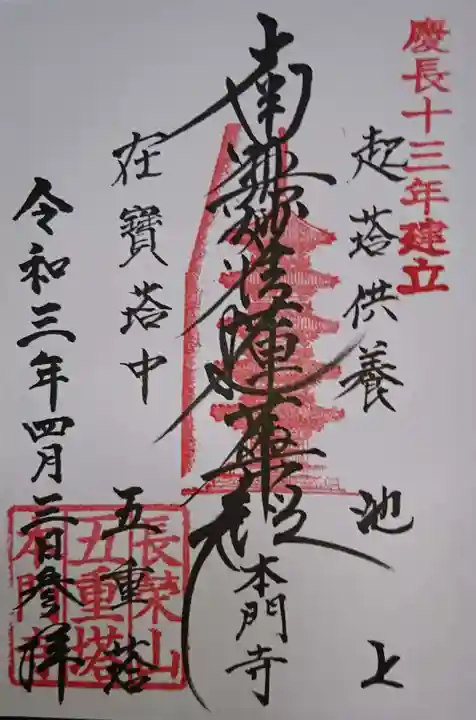 慶長十三年建立
起塔供養
池上
南無妙法蓮華経
本門寺
在寶塔中
五重塔
令和三年四月三日参拝
長榮山
五重塔
本門寺